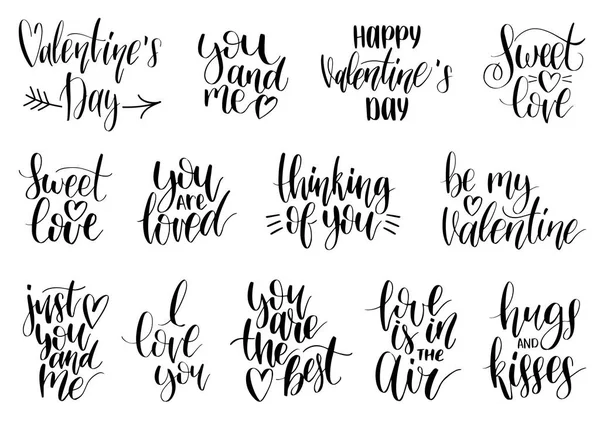 Valentine's
Day
you
and
me
HAPPY
Valentine's
DAY
Sweet
love
Sweet
love
you
ARE
loved
thinking
of you
be my
Valentine
just
you
and
me
I
love
you
you
are
the
best
love
is in
THE
Air
hugs
AND
kisses